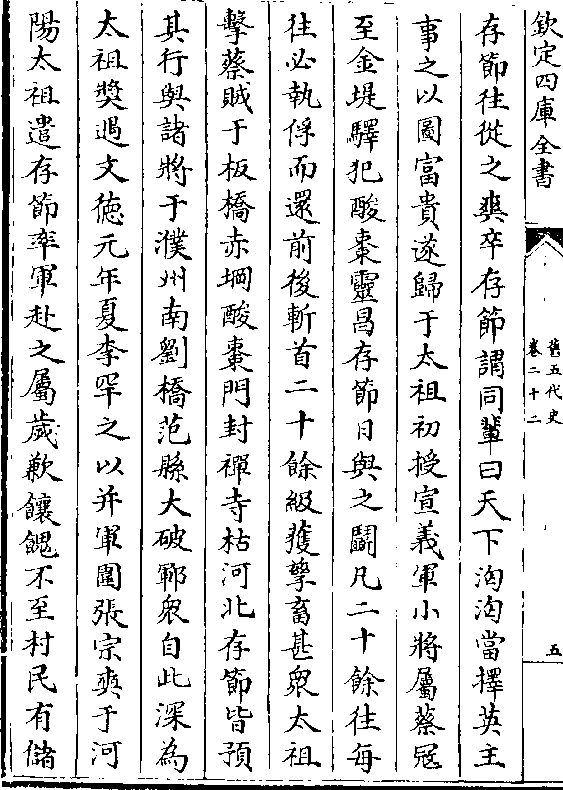 欽定四庫全書
舊五代史
卷二十二
五
存節往從之爽卒存節謂同輩曰天下洶洶當擇英主
事之以圖富貴遂歸于太祖初授宣義軍小將屬蔡冦
至金堤驛犯酸棗靈昌存節日與之鬭凡二十餘往每
往必執俘而還前後斬首二十餘級獲孳畜甚衆太祖
擊蔡賊于板橋赤堈酸棗門封禪寺枯河北存節皆預
其行與諸將于濮州南劉橋范縣大破鄆衆自此深為
太祖奬遇文徳元年夏李罕之以并軍圍張宗奭于河
陽太祖遣存節率軍赴之屬歲歉饟餽不至村民有儲